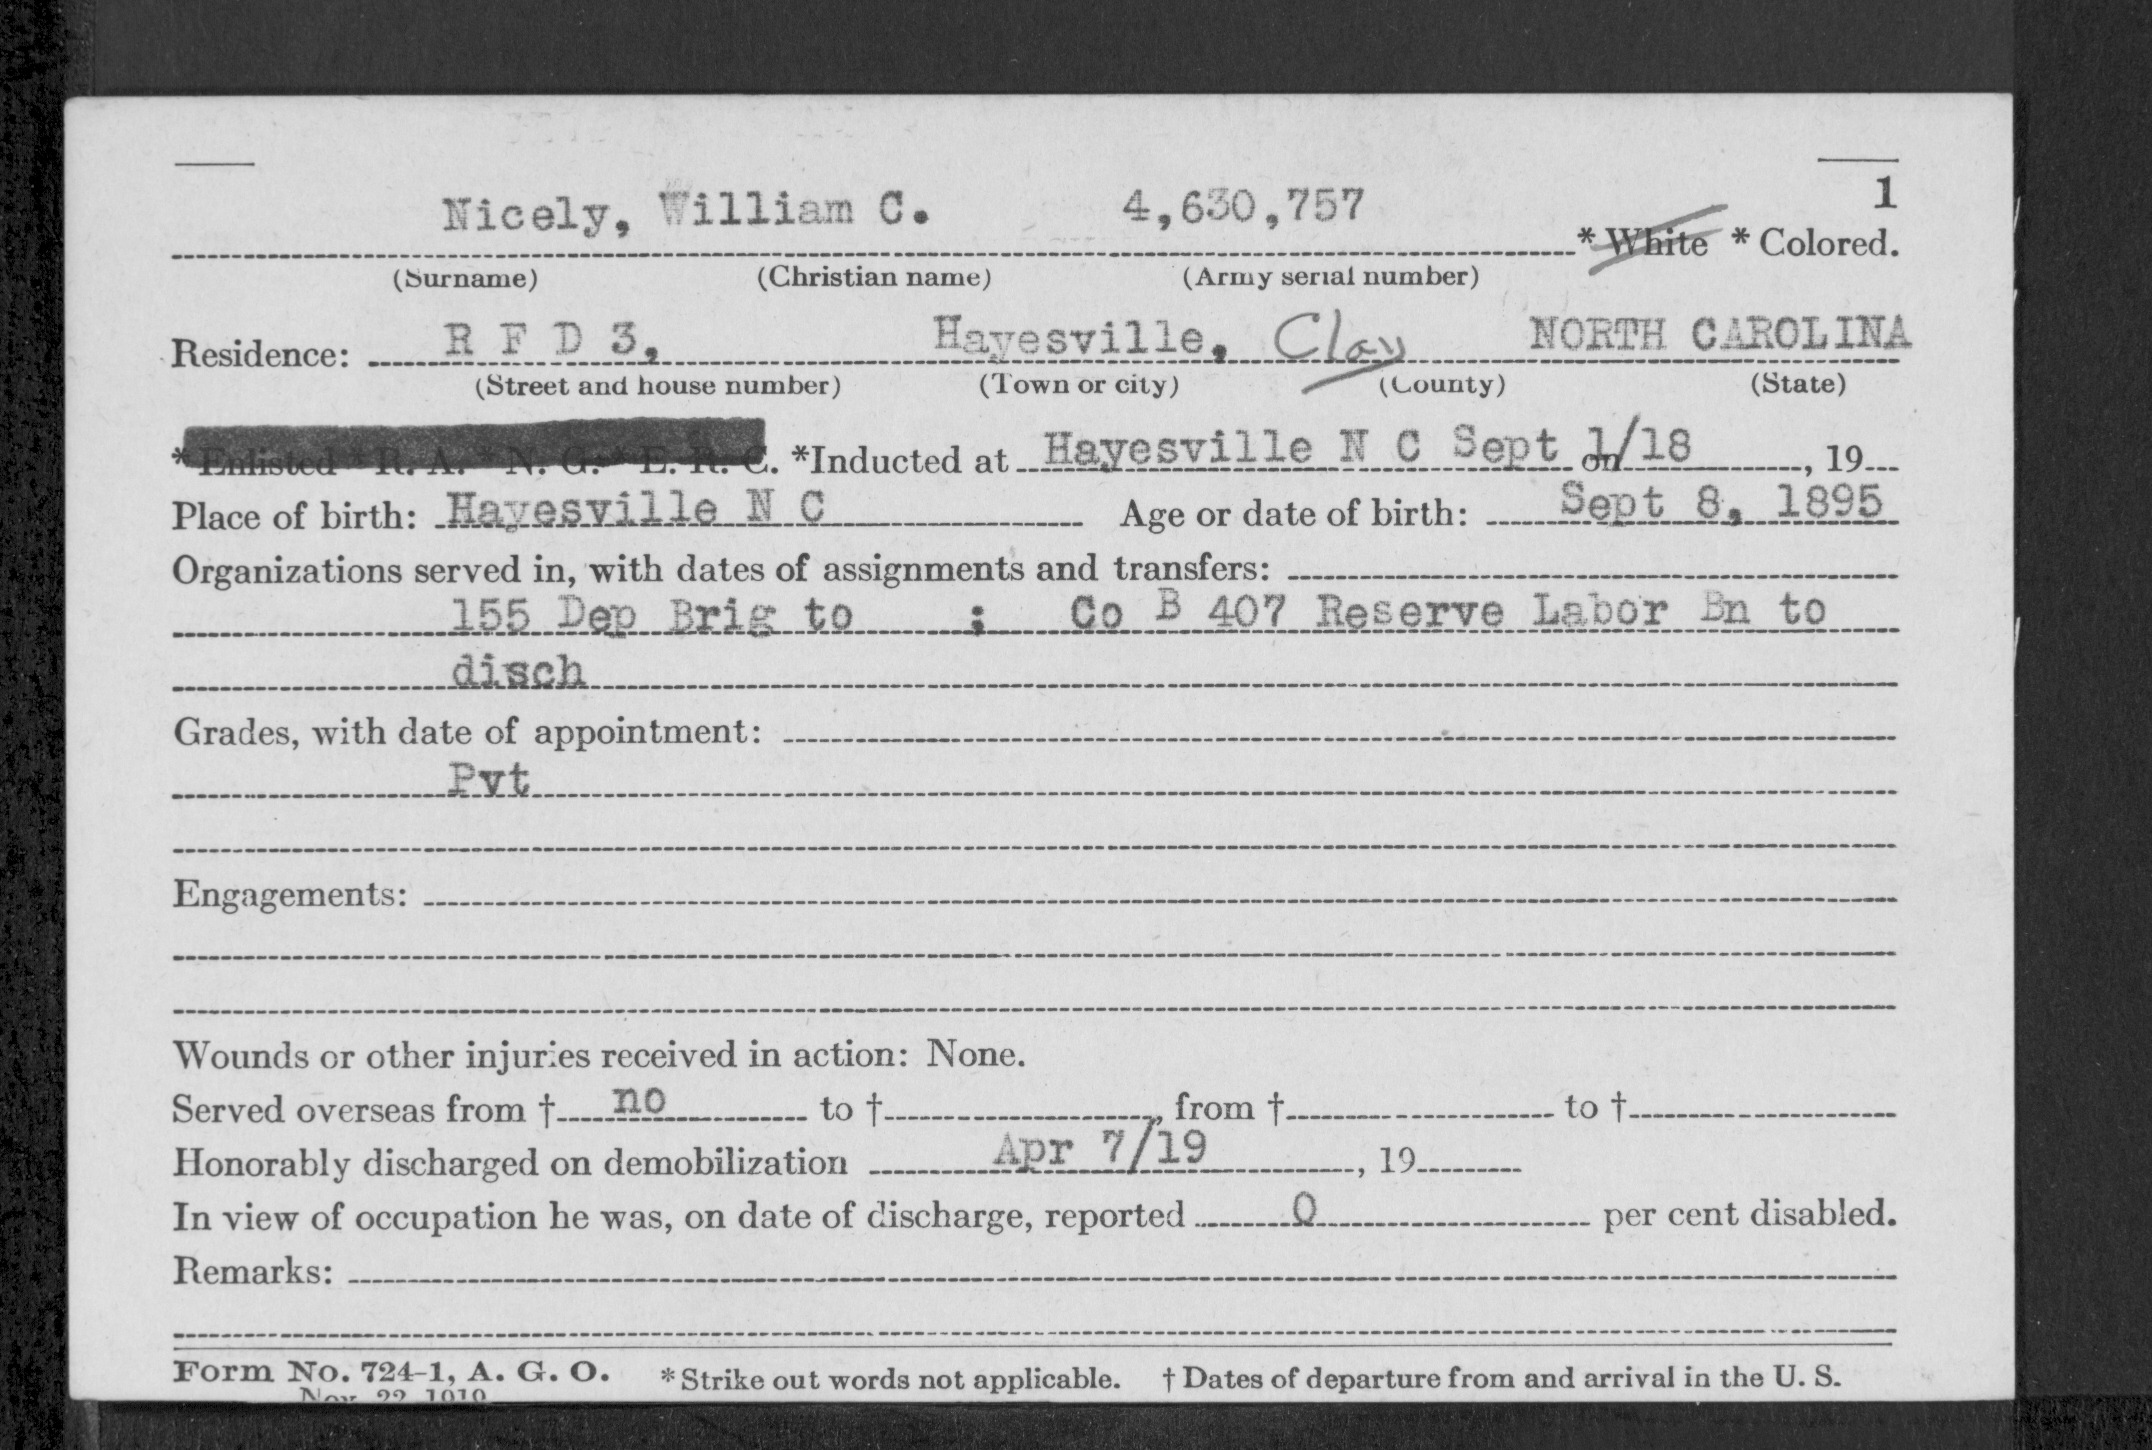 1
Nicely, William C. 4,630,757 * White * Colored.
(Surname) (Christian name) (Army serial number)
Residence: R F D 3, Hayesville, Clay NORTH CAROLINA
(Street and house number) (Town or city) (County) (State)
* Enlisted * R. A. * N. G. * E. R. C. *Inducted at Hayesville N C Sept 1/18 on , 19
Place of birth: Hayesville N C Age or date of birth: Sept 8, 1895
Organizations served in, with dates of assignments and transfers:
155 Dep Brig to ; Co B 407 Reserve Labor Bn to
disch
Grades, with date of appointment:
Pvt
Engagements:
Wounds or other injuries received in action: None.
Served overseas from † no to † , from † to †
Honorably discharged on demobilization Apr 7/19 , 19
In view of occupation he was, on date of discharge, reported 0 per cent disabled.
Remarks:
Form No. 724-1, A. G. O. * Strike out words not applicable. † Dates of departure from and arrival in the U. S.
Nov. 22, 1919